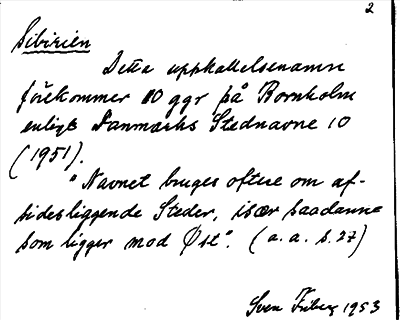 2
Sibirien
Detta uppkallelsenamn
förekommer 10 ggr på Bornholm
enligt Danmarks Stednavne 10
(1951).
"Navnet bruges oftere om af-
sidesliggende Steder, især saadanne
som ligger mod Øst". (a. a. s. 27)
Sven Fiberg 1953